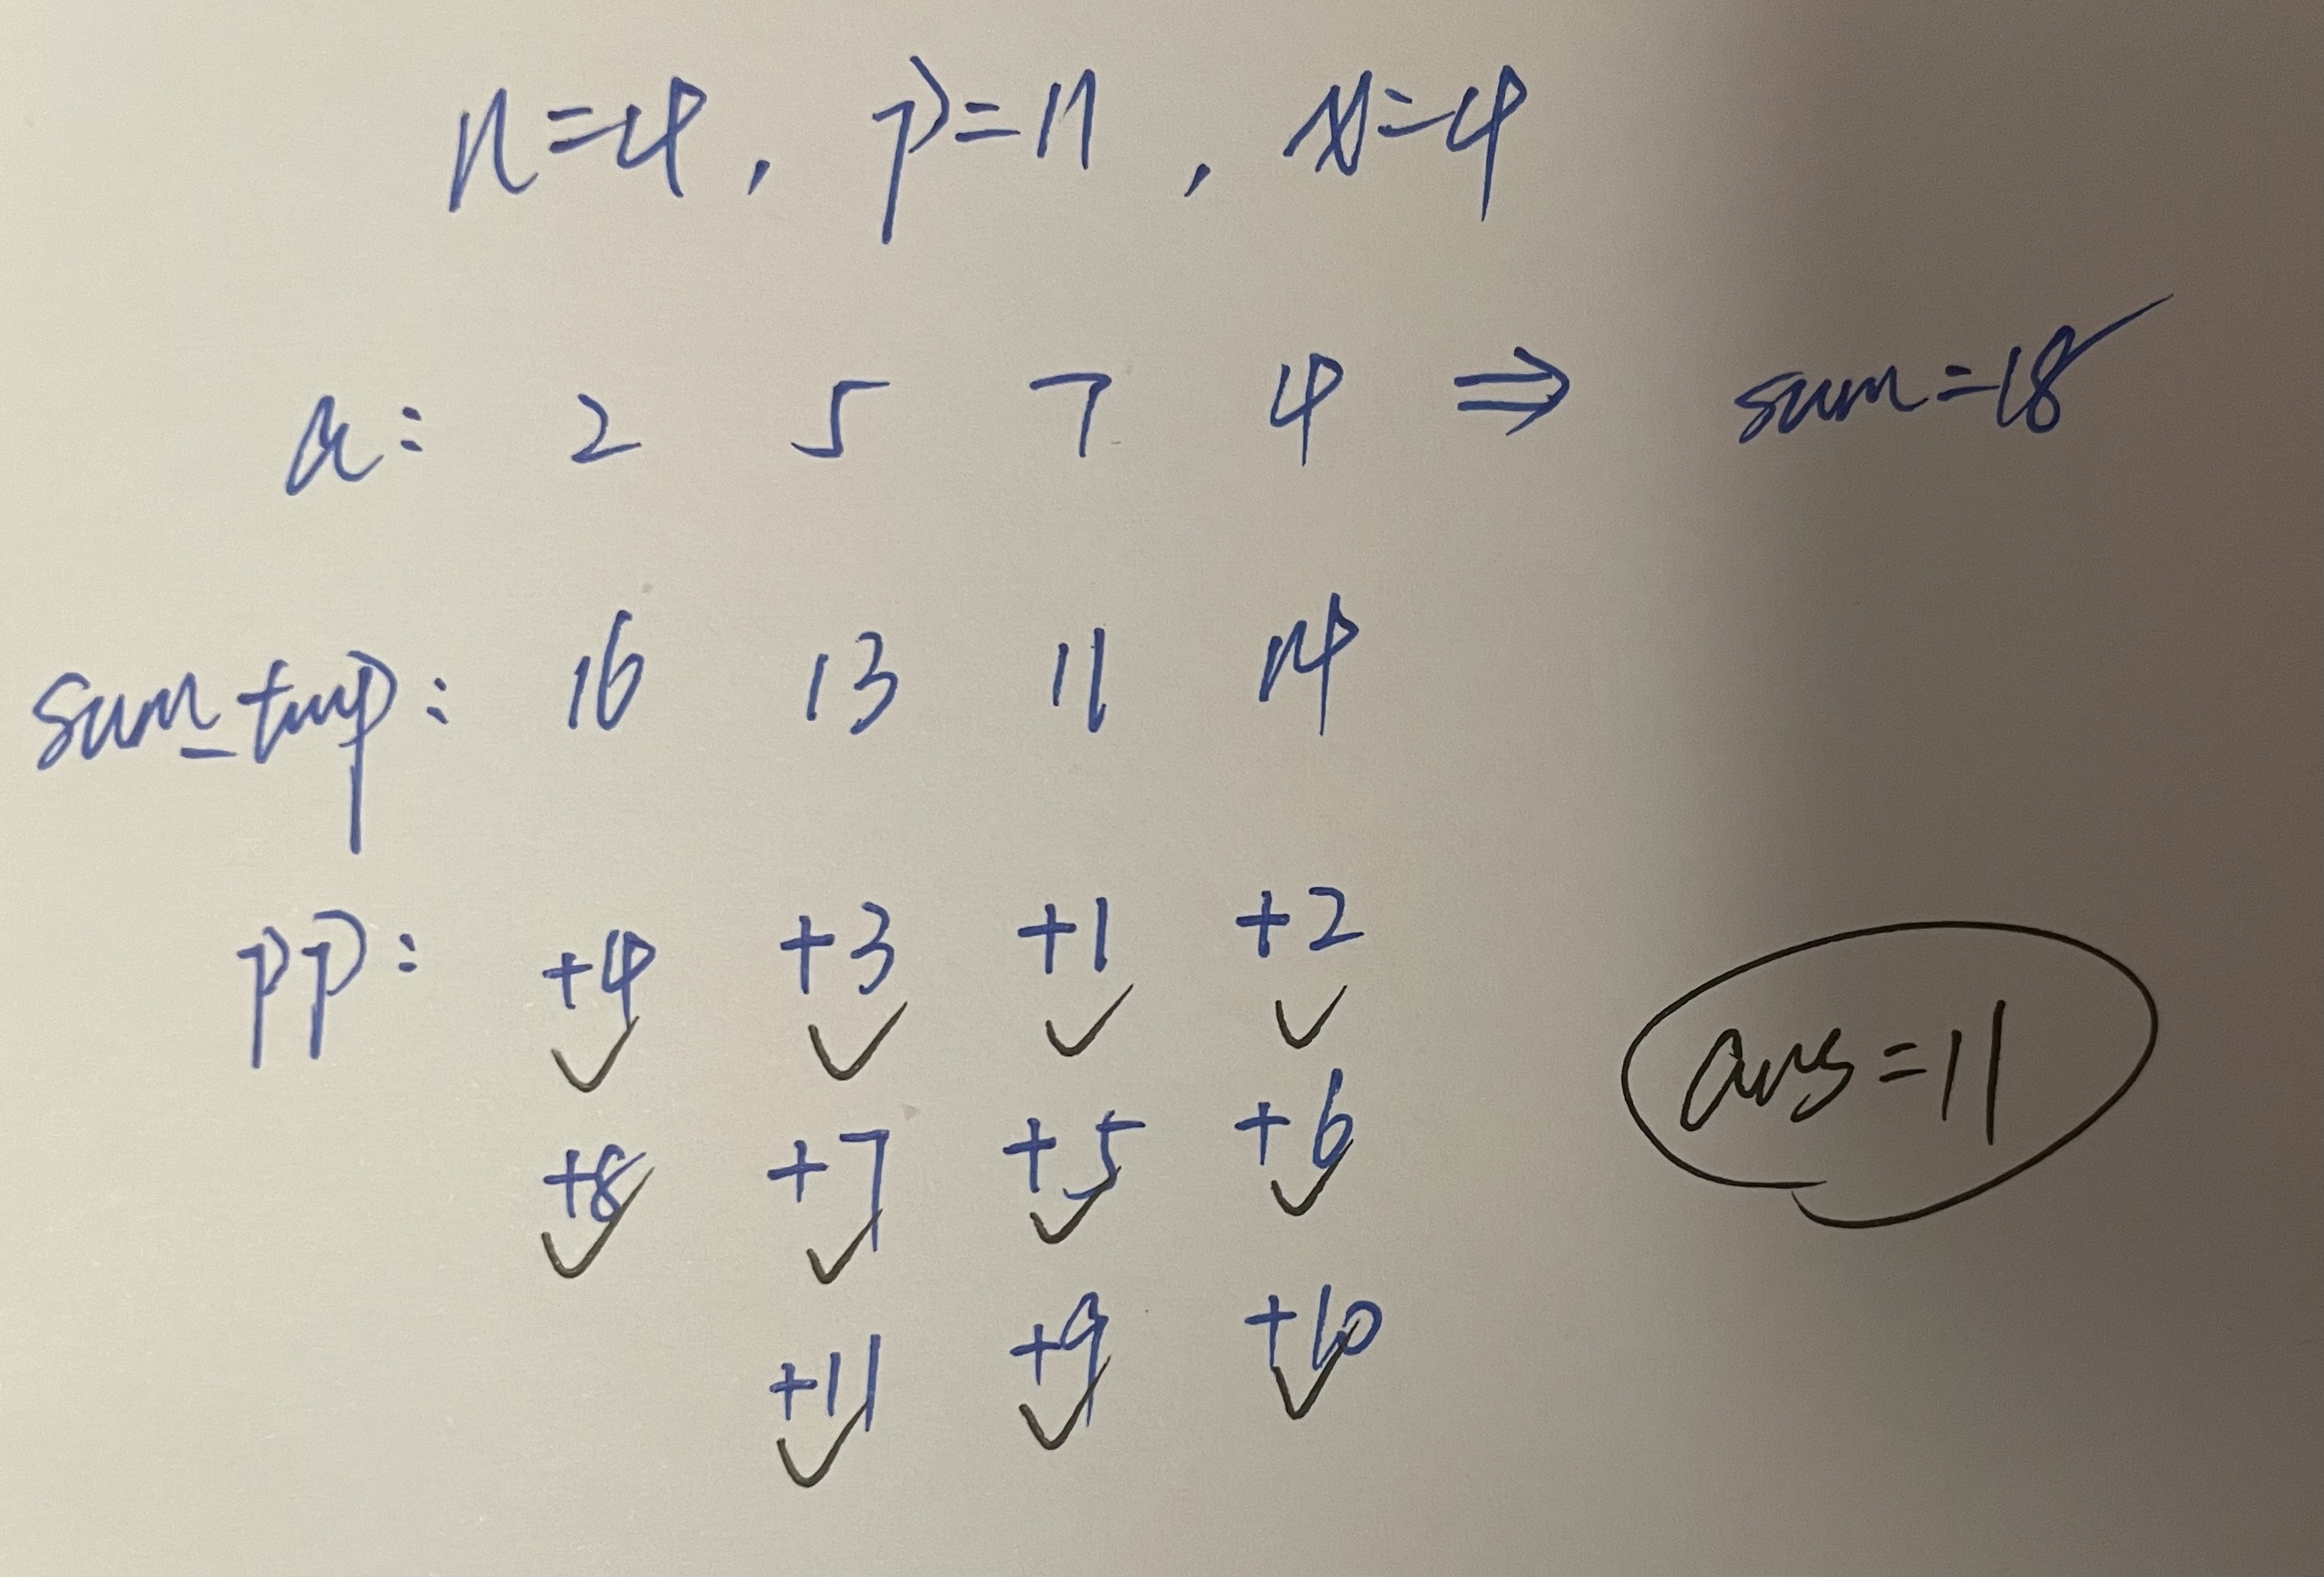 n=4, p=11, x=4
a: 2 5 7 4 ⇒ sum=18
sum_tmp: 16 13 11 14
pp: +4 +3 +1 +2
ans=11
+8 +7 +5 +6
+11 +9 +10